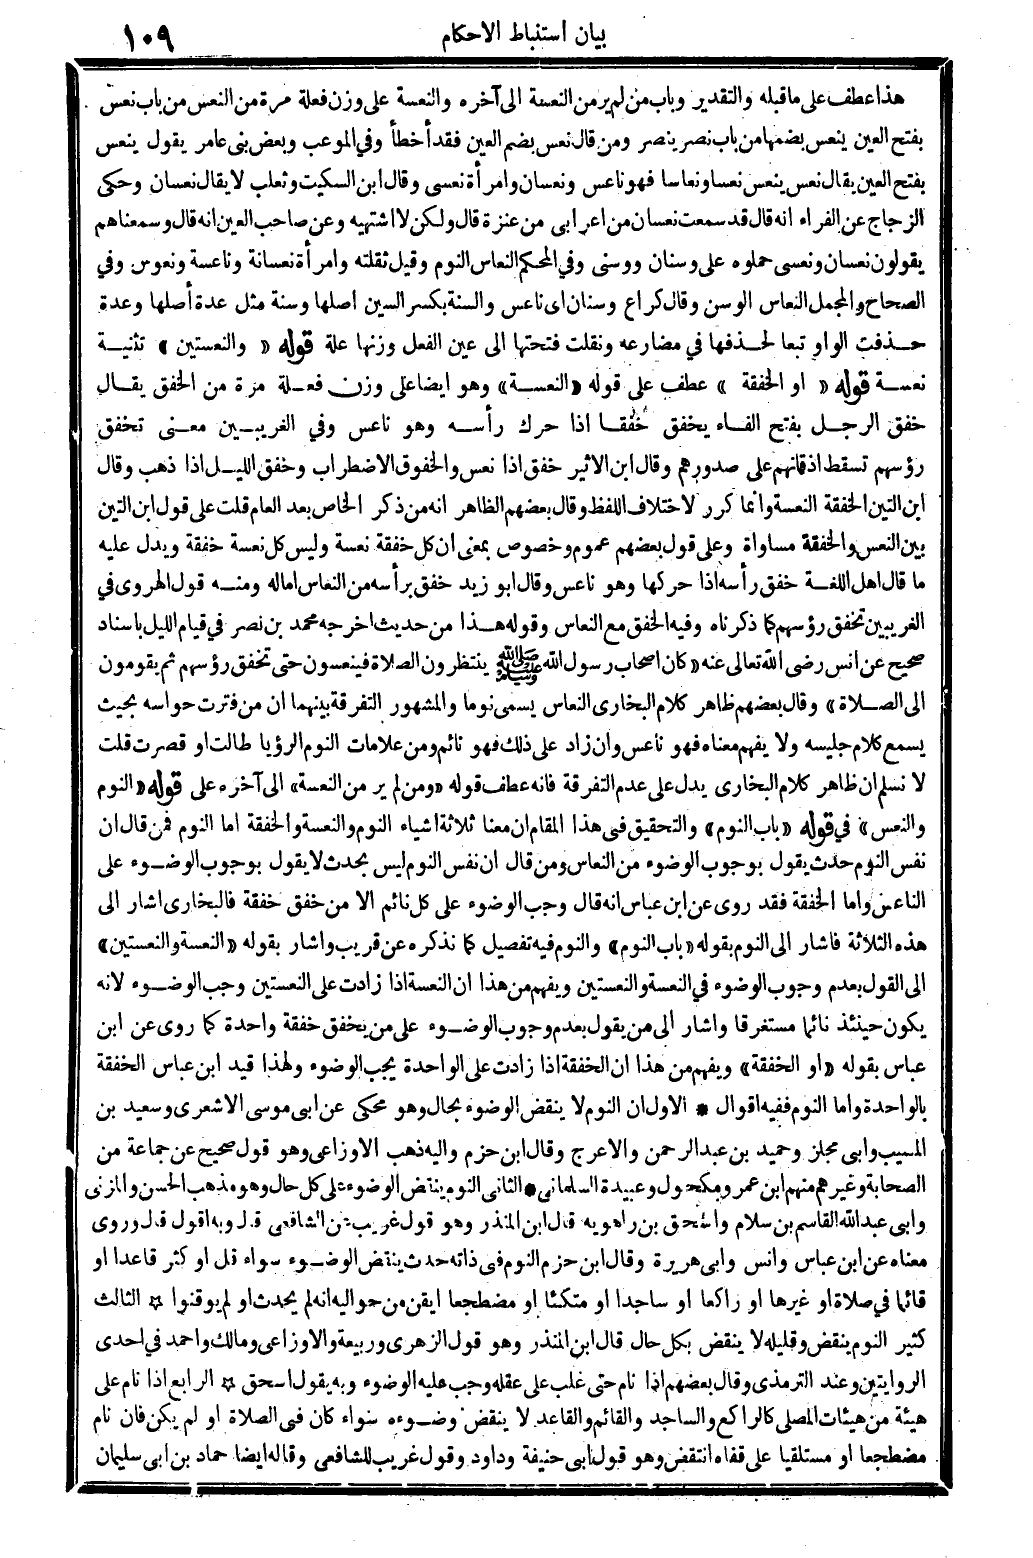 بيان استنباط الاحكام ١٠٩
هذا عطف على ما قبله والتقدير وباب من لم ير من النعسة الى آخره والنعسة على وزن فعلة مرة من النعس من باب نعس
بفتح العين ينعس بضمها من باب نصر ينصر ومن قال نعس بضم العين فقد أخطأ وفي الموعب وبعض بنى عامر يقول ينعس
بفتح العين يقال نعس ينعس نعسا ونعاسا فهو ناعس ونعسان وامرأة نعسى وقال ابن السكيت وثعلب لا يقال نعسان وحكى
الزجاج عن الفراء انه قال قد سمعت نعسان من اعرابى من عنزة قال ولكن لا اشتهيه وعن صاحب العين انه قال وسمعناهم
يقولون نعسان ونعسى حملوه على وسنان ووسنى وفي المحكم النعاس النوم وقيل ثقلته وامرأة نعسانة وناعسة ونعوس وفي
الصحاح والمجمل النعاس الوسن وقال كراع وسنان اى ناعس والسنة بكسر السين اصلها وسنة مثل عدة أصلها وعدة
حذفت الواو تبعا لحذفها في مضارعه ونقلت فتحتها الى عين الفعل وزنها علة قوله « والنعستين » تثنية
نعسة قوله « او الخفقة » عطف على قوله «النعسة» وهو ايضا على وزن فعلة مرة من الخفق يقال
خفق الرجل بفتح الفاء يخفق خفقا اذا حرك رأسه وهو ناعس وفي الغريبين معنى تخفق
رؤسهم تسقط اذقانهم على صدورهم وقال ابن الاثير خفق اذا نعس والخفوق الاضطراب وخفق الليل اذا ذهب وقال
ابن التين الخفقة النعسة وانما كرر لاختلاف اللفظ وقال بعضهم الظاهر انه من ذكر الخاص بعد العام قلت على قول ابن التين
بين النعس والخفقة مساواة وعلى قول بعضهم عموم وخصوص بمعنى ان كل خفقة نعسة وليس كل نعسة خفقة ويدل عليه
ما قال اهل اللغة خفق رأسه اذا حركها وهو ناعس وقال ابو زيد خفق برأسه من النعاس اماله ومنه قول الهروى في
الغريبين تخفق رؤسهم كما ذكرناه وفيه الخفق مع النعاس وقوله هذا من حديث اخرجه محمد بن نصر في قيام الليل باسناد
صحيح عن انس رضى الله تعالى عنه «كان اصحاب رسول الله ﷺ ينتظرون الصلاة فينعسون حتى تخفق رؤسهم ثم يقومون
الى الصلاة» وقال بعضهم ظاهر كلام البخارى النعاس يسمى نوما والمشهور التفرقة بينهما ان من فترت حواسه بحيث
يسمع كلام جليسه ولا يفهم معناه فهو ناعس وان زاد على ذلك فهو نائم ومن علامات النوم الرؤيا طالت او قصرت قلت
لا نسلم ان ظاهر كلام البخارى يدل على عدم التفرقة فانه عطف قوله «ومن لم ير من النعسة» الى آخره على قوله «النوم
والنعس» في قوله «باب النوم» والتحقيق فى هذا المقام ان معنا ثلاثة اشياء النوم والنعسة والخفقة اما النوم فمن قال ان
نفس النوم حدث يقول بوجوب الوضوء من النعاس ومن قال ان نفس النوم ليس بحدث لا يقول بوجوب الوضوء على
الناعس واما الخفقة فقد روى عن ابن عباس انه قال وجب الوضوء على كل نائم الا من خفق خفقة فالبخارى اشار الى
هذه الثلاثة فاشار الى النوم بقوله «باب النوم» والنوم فيه تفصيل كما نذكره عن قريب واشار بقوله «النعسة والنعستين»
الى القول بعدم وجوب الوضوء في النعسة والنعستين ويفهم من هذا ان النعسة اذا زادت على النعستين وجب الوضوء لانه
يكون حينئذ نائما مستغرقا واشار الى من يقول بعدم وجوب الوضوء على من يخفق خفقة واحدة كما روى عن ابن
عباس بقوله «او الخفقة» ويفهم من هذا ان الخفقة اذا زادت على الواحدة يجب الوضوء ولهذا قيد ابن عباس الخفقة
بالواحدة واما النوم ففيه اقوال * الاول ان النوم لا ينقض الوضوء بحال وهو محكى عن ابى موسى الاشعرى وسعيد بن
المسيب وابى مجلز وحميد بن عبد الرحمن والاعرج وقال ابن حزم واليه ذهب الاوزاعى وهو قول صحيح عن جماعة من
الصحابة وغيرهم منهم ابن عمر ومكحول وعبيدة السلمانى * الثانى النوم ينقض الوضوء على كل حال وهو مذهب الحسن والمزنى
وابى عبد الله القاسم بن سلام واسحق بن راهويه قال ابن المنذر وهو قول غريب عن الشافعى قال وبه اقول قال وروى
معناه عن ابن عباس وانس وابى هريرة وقال ابن حزم النوم فى ذاته حدث ينقض الوضوء سواء قل او كثر قاعدا او
قائما في صلاة او غيرها او راكعا او ساجدا او متكئا او مضطجعا ايقن من حواليه انه لم يحدث او لم يوقنوا * الثالث
كثير النوم ينقض وقليله لا ينقض بكل حال قال ابن المنذر وهو قول الزهرى وربيعة والاوزاعى ومالك واحمد في احدى
الروايتين وعند الترمذى وقال بعضهم اذا نام حتى غلب على عقله وجب عليه الوضوء وبه يقول اسحق * الرابع اذا نام على
هيئة من هيئات المصلى كالراكع والساجد والقائم والقاعد لا ينقض وضوءه سواء كان فى الصلاة او لم يكن فان نام
مضطجعا او مستلقيا على قفاه انتقض وهو قول ابى حنيفة وداود وقول غريب للشافعى وقاله ايضا حماد بن ابى سليمان